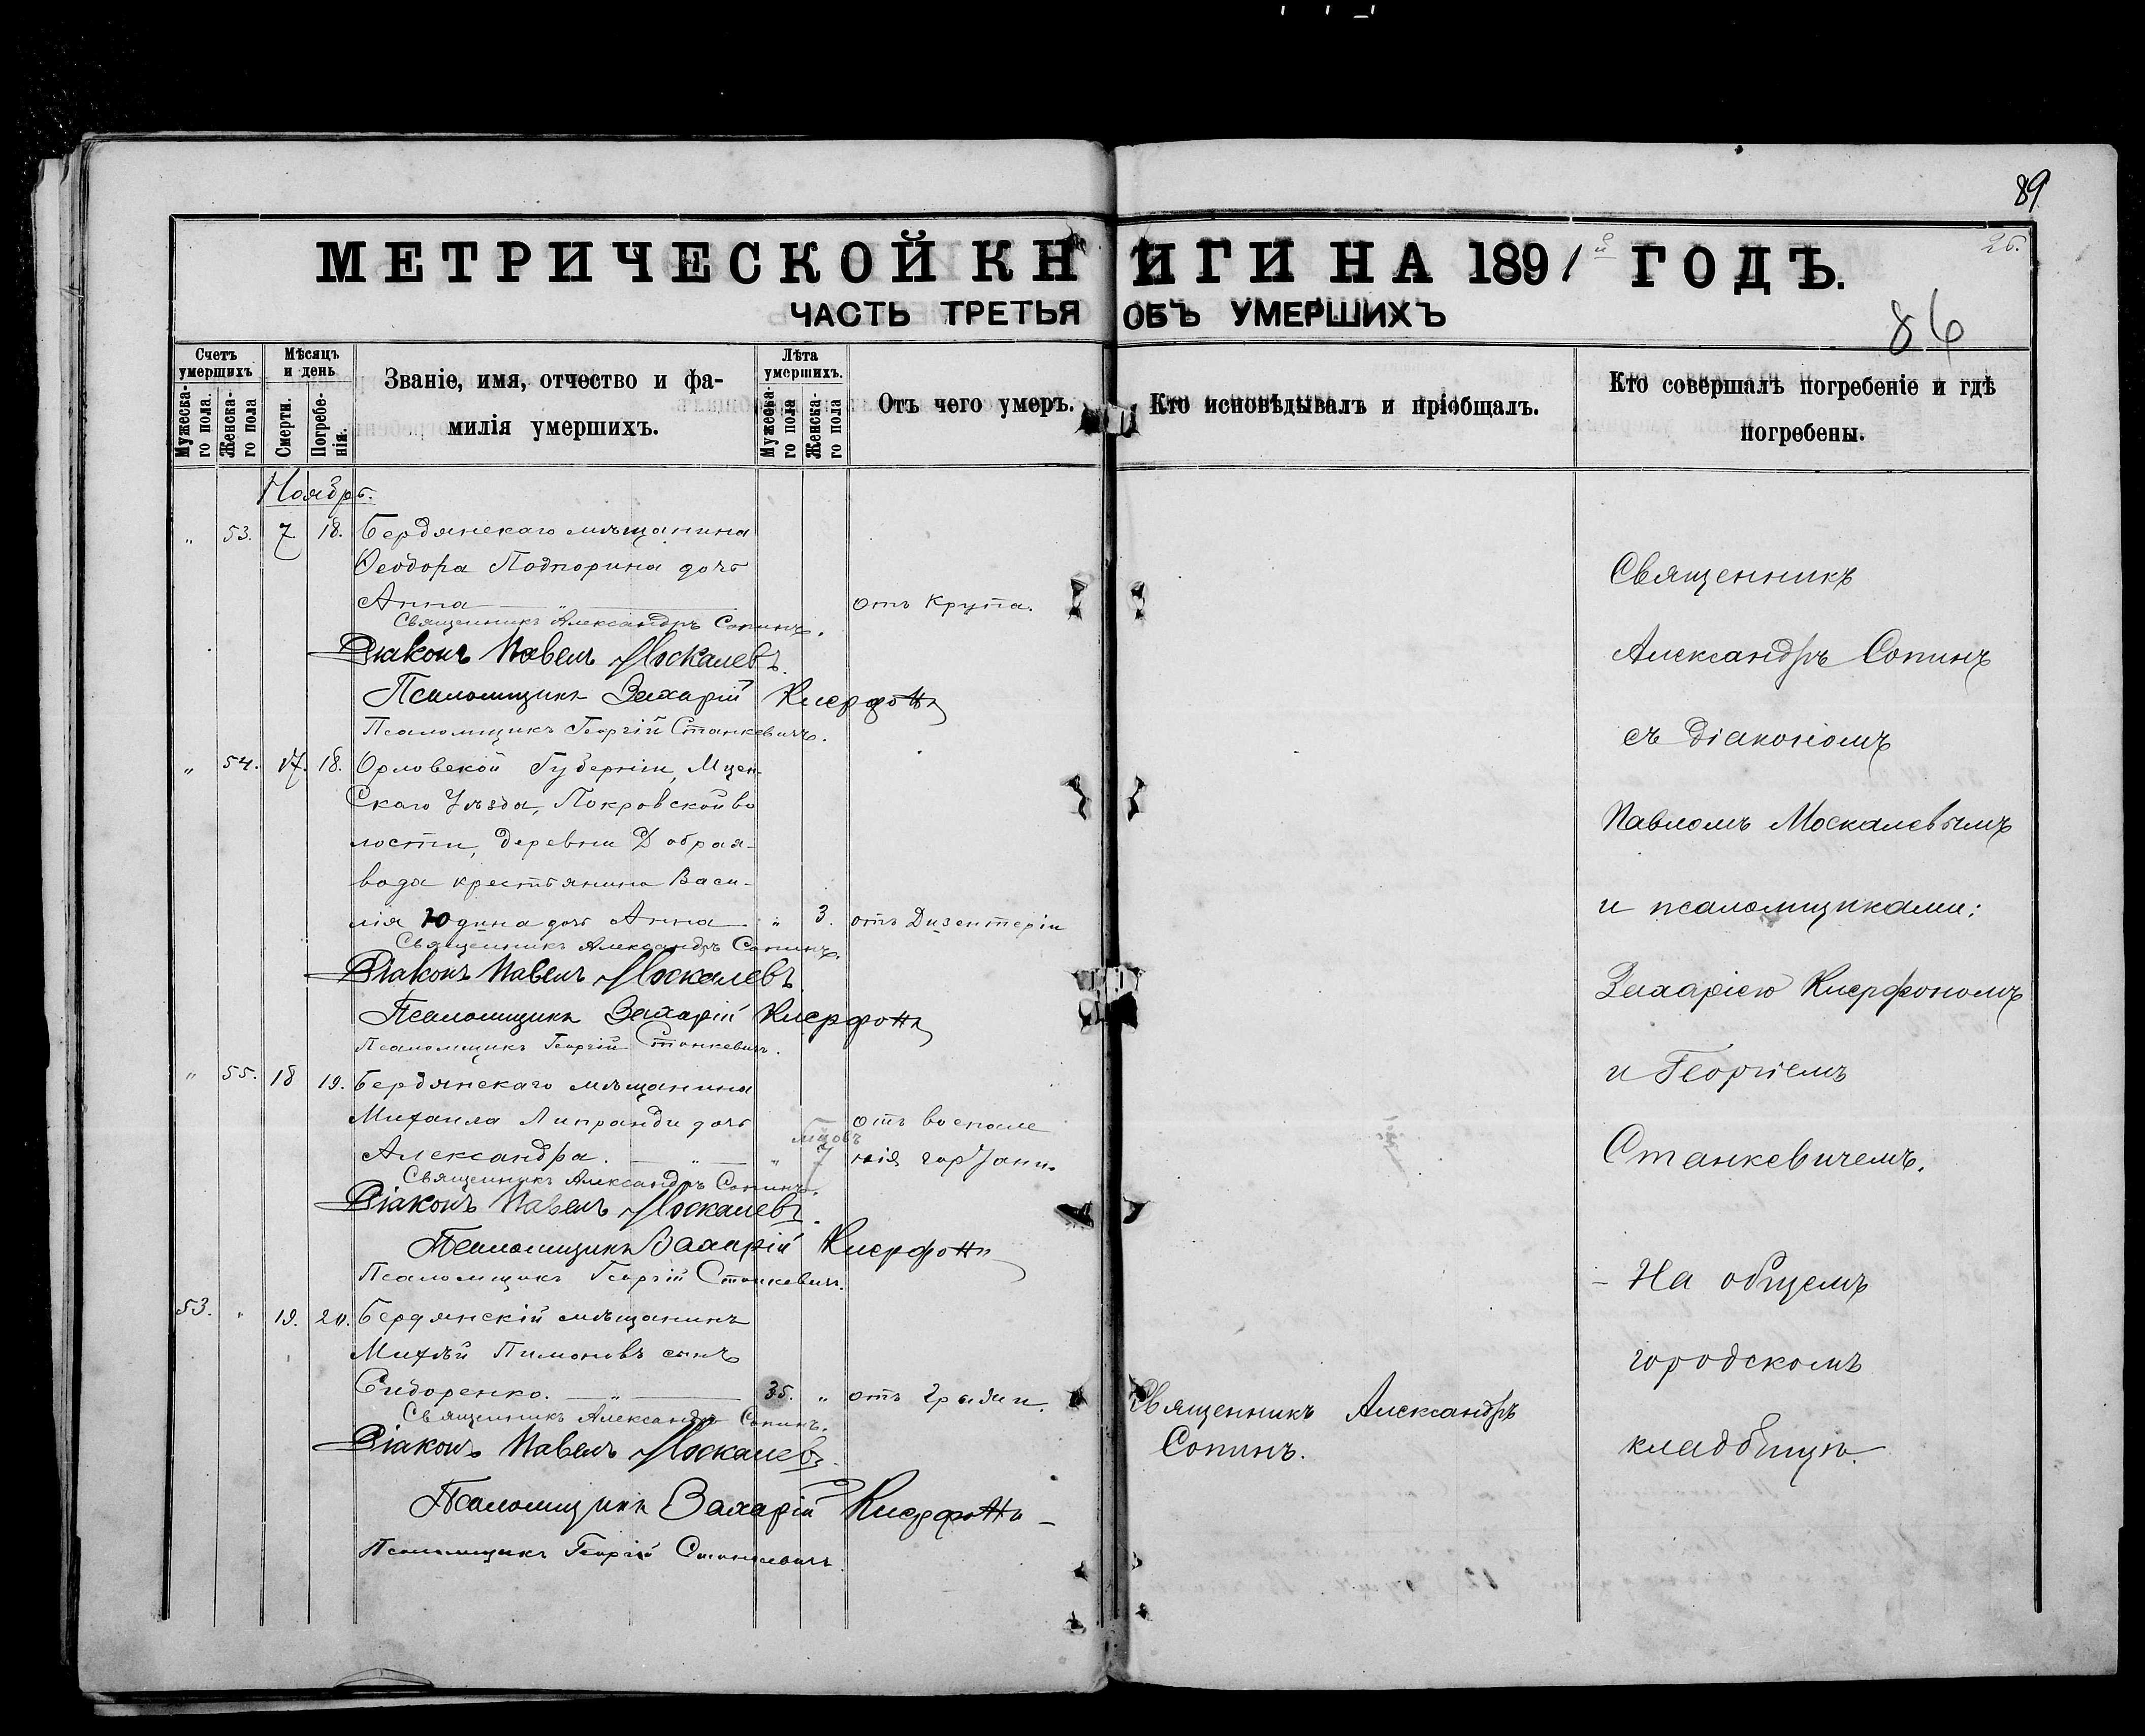 89
26.
МЕТРИЧЕСКОЙ КНИГИ НА 1891й ГОДЪ.
ЧАСТЬ ТРЕТЬЯ ОБЪ УМЕРШИХЪ
86
Счетъ умершихъ
Мѣсяцъ и день
Званіе, имя, отчество и фамилія умершихъ.
Лѣта умершихъ.
Отъ чего умеръ.
Кто исповѣдывалъ и пріобщалъ.
Кто совершалъ погребеніе и гдѣ погребены.
Мужескаго пола.
Женскаго пола
Смерти.
Погребенія.
Мужескаго пола
Женскаго пола
Ноябрь.
" 53. 7 18. Бердянскаго мѣщанина
Ѳеодора Подпорина дочь
Анна — " — отъ Крупа.
Священникъ Александръ Сопинъ.
Діаконъ Павелъ Москалевъ.
Псаломщикъ Захарій Ксерфонъ
Псаломщикъ Георгій Станкевичъ.
" 54. 17. 18. Орловской Губерніи, Мцен-
скаго Уѣзда, Покровской во
лости, деревни Добрая-
вода крестьянина Васи-
лія Юдина дочь Анна " 3. отъ Дизентеріи
Священникъ Александръ Сопинъ.
Діаконъ Павелъ Москалевъ
Псаломщикъ Захарій Ксерфонъ
Псаломщикъ Георгій Станкевичъ.
" 55. 18 19. Бердянскаго мѣщанина
Михаила Липранди дочь отъ воспале
Александра. — " — " мцовъ 7 нія гортани.
Священникъ Александръ Сопинъ.
Діаконъ Павелъ Москалевъ.
Псаломщикъ Захарій Ксерфонъ
Псаломщикъ Георгій Станкевичъ.
53. " 19. 20. Бердянскій мѣщанинъ
Михѣй Пимоновъ сынъ
Сидоренко. — " — 35. " отъ грыжи.
Священникъ Александръ Сопинъ.
Діаконъ Павелъ Москалевъ.
Псаломщикъ Захарій Ксерфонъ —
Псаломщикъ Георгій Станкевичъ
Священникъ Александръ
Сопинъ.
Священникъ
Александръ Сопинъ
съ діакономъ
Павломъ Москалевымъ
и псаломщиками:
Захаріею Ксерфономъ
и Георгіемъ
Станкевичемъ.
— На общемъ
городскомъ
кладбищѣ.